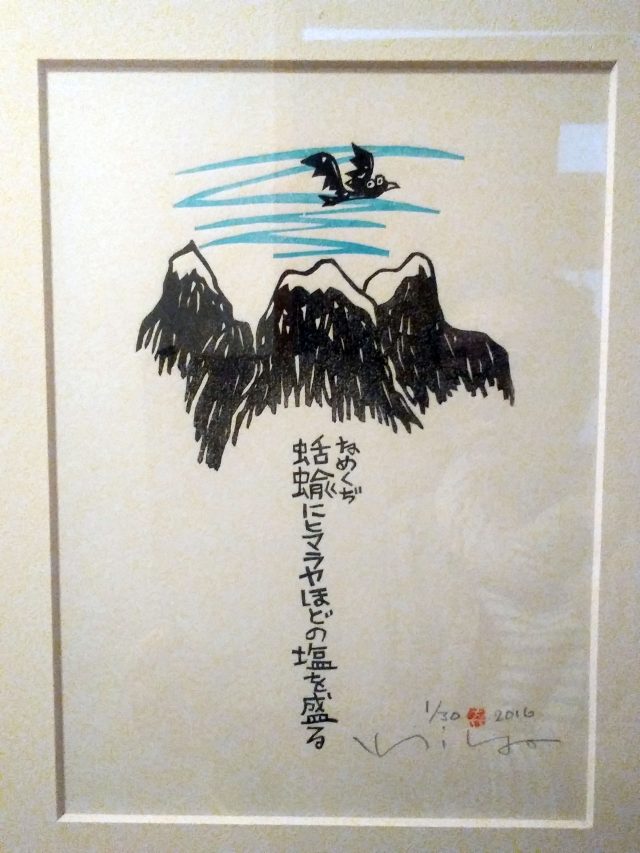 なめくぢ
蛞蝓にヒマラヤほどの塩を盛る
1/30 2016